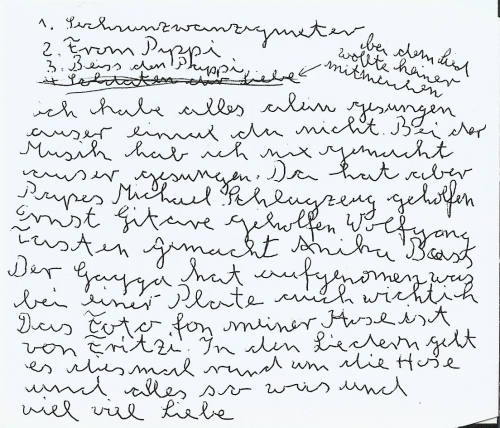 1. Sechsunzwanzigmeter
2. From Pippi
3. Beiss den Puppi
4. Soldaten der Liebe
bei dem Lied
wollte keiner
mitmachen
ich habe alles alein gesungen
auser einmal da nicht. Bei der
Musik hab ich nix gemacht
auser gesungen. Da hat aber
Michael Schlagzeug geholfen
Ernst Gitare geholfen Wolfgang
Tasten gemacht Anika Bass
Der Gagga hat aufgenomen was
bei einer Plate auch wichtich
Das Foto fon meiner Hose ist
von Fritzi. In den Liedern geht
es diesmal rund um die Hose
und alles so was und
viel viel Liebe